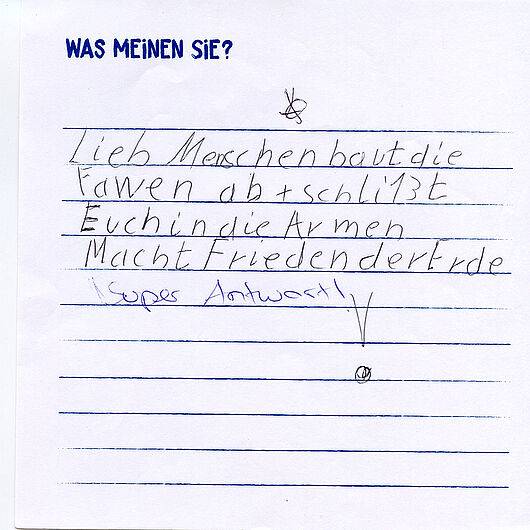 WAS MEINEN SIE?
Lieb Menschen baut die
Fawen ab + schlißt
Euch in die Armen
Macht Frieden der Erde
!Super Antwort!